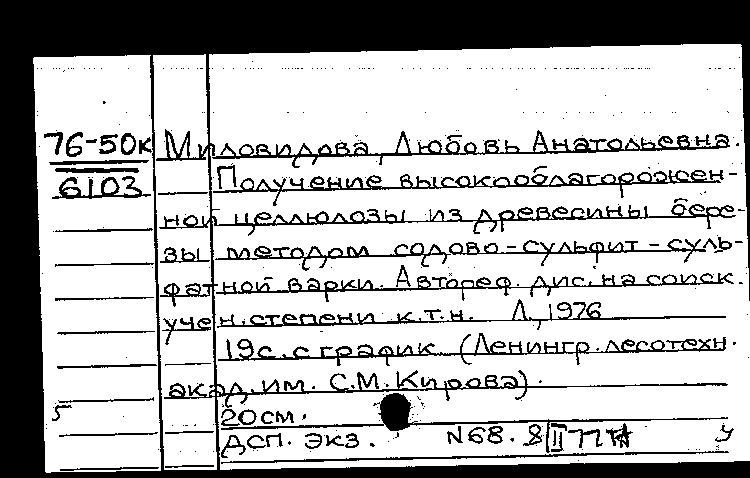 76-50к Миловидова, Любовь Анатольевна.
6103 Получение высокооблагорожен-
ной целлюлозы из древесины бере-
зы методом содово-сульфит-суль-
фатной варки. Автореф. дис. на соиск.
учен. степени к.т.н. Л., 1976
19с. с график. (Ленингр. лесотехн.
акад. им. С.М. Кирова).
5 20см.
ДСП. экз. N68. 8 II 77